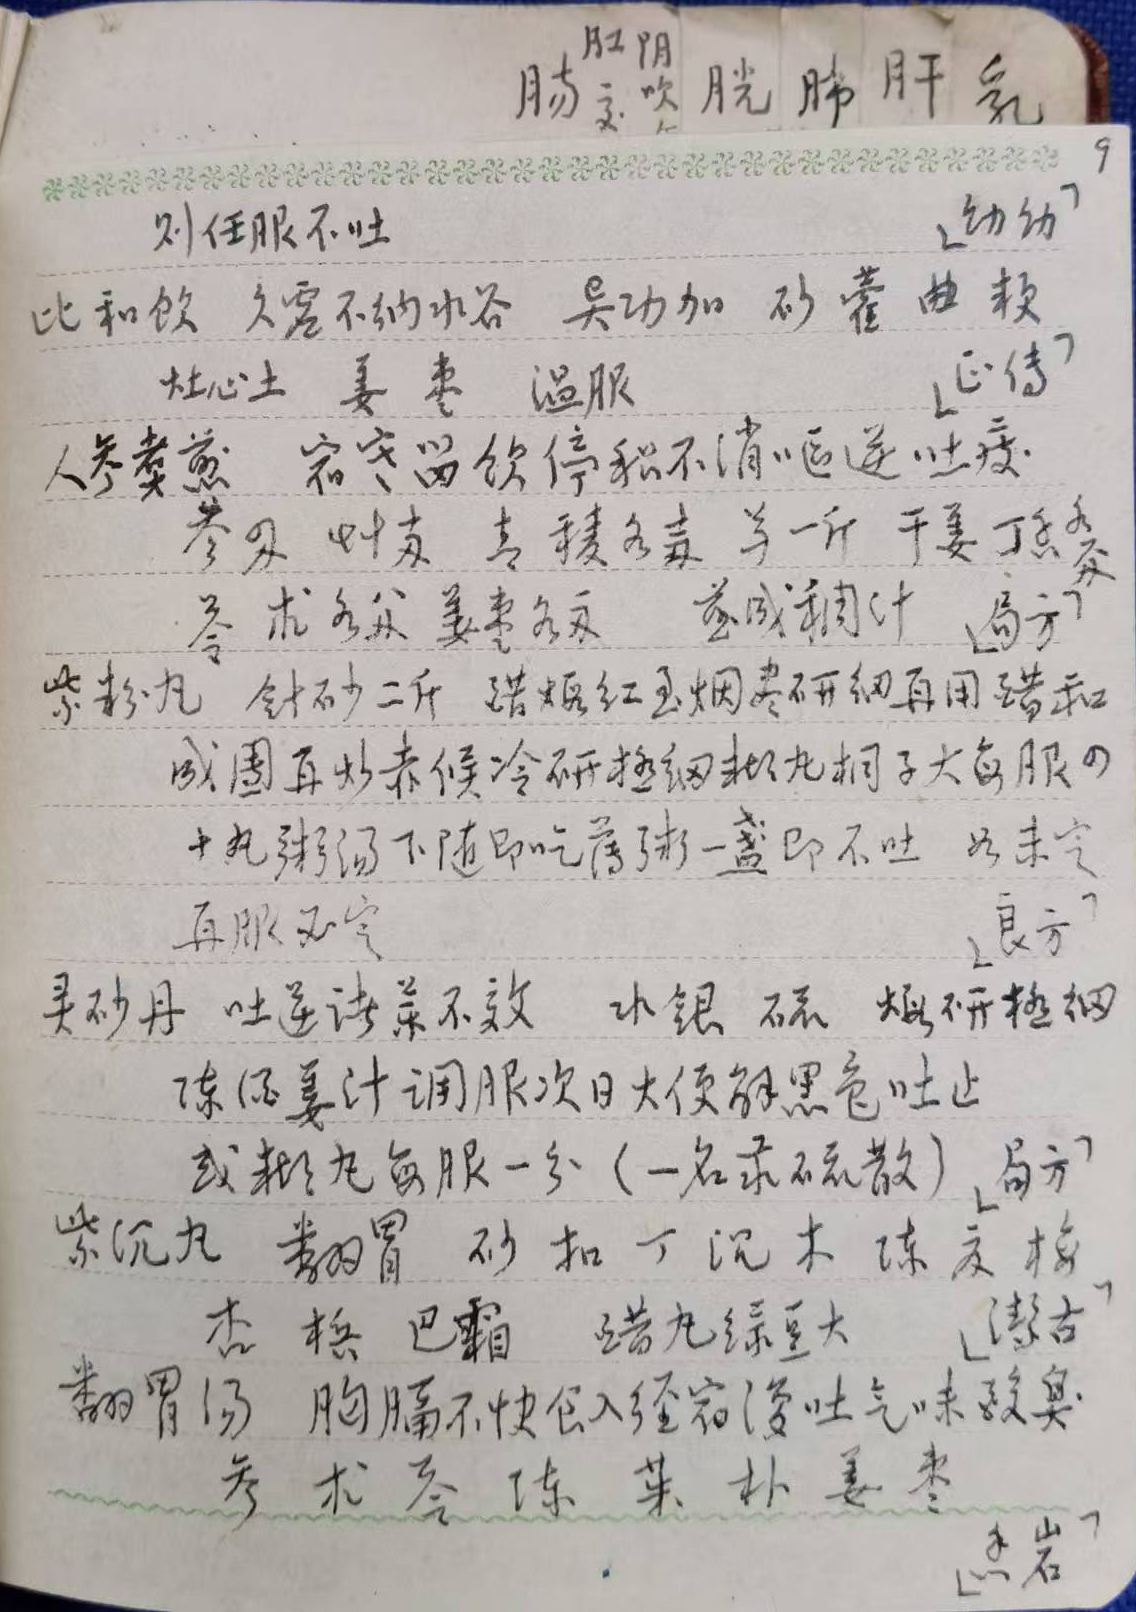 肠 肛 交 阴吹 胱 肺 肝 乳
9
则任服不吐 「幼幼」
比和饮 久虚不纳水谷 吴功加 砂 藿 曲 粳
灶心土 姜 枣 温服 「正传」
人参煎 宿寒留饮停积不消呕逆吐痰
参 青 各 草一斤 干姜 丁香各
苓 术各 姜枣各 煎成稠汁 「局方」
紫粉丸 针砂二斤 醋煅红至烟尽研细再用醋和
成团再炒赤候冷研极细糊丸桐子大每服四
十丸粥汤下随即吃薄粥一盏即不吐 如未定
再服必定 「良方」
灵砂丹 吐逆诸药不效 水银 硫 煅研极细
陈酒姜汁调服次日大便解黑色吐止
或糊丸每服一分(一名汞硫散) 「局方」
紫沉丸 翻胃 砂 扣 丁 沉 木 陈 夏 梅
杏 槟 巴霜 醋丸绿豆大 「洁古」
翻胃汤 胸膈不快食入经宿复吐气味酸臭
参 术 苓 陈 菜 朴 姜 枣
「香岩」